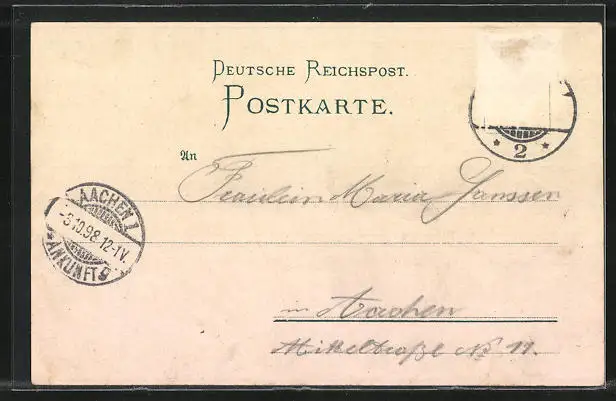 DEUTSCHE REICHSPOST.
POSTKARTE.
2
An
Fräulein Maria Janssen
AACHEN 1
-3.10.98.12-1V.
ANKUNFT
in Aachen
Mittelstraße No 11.